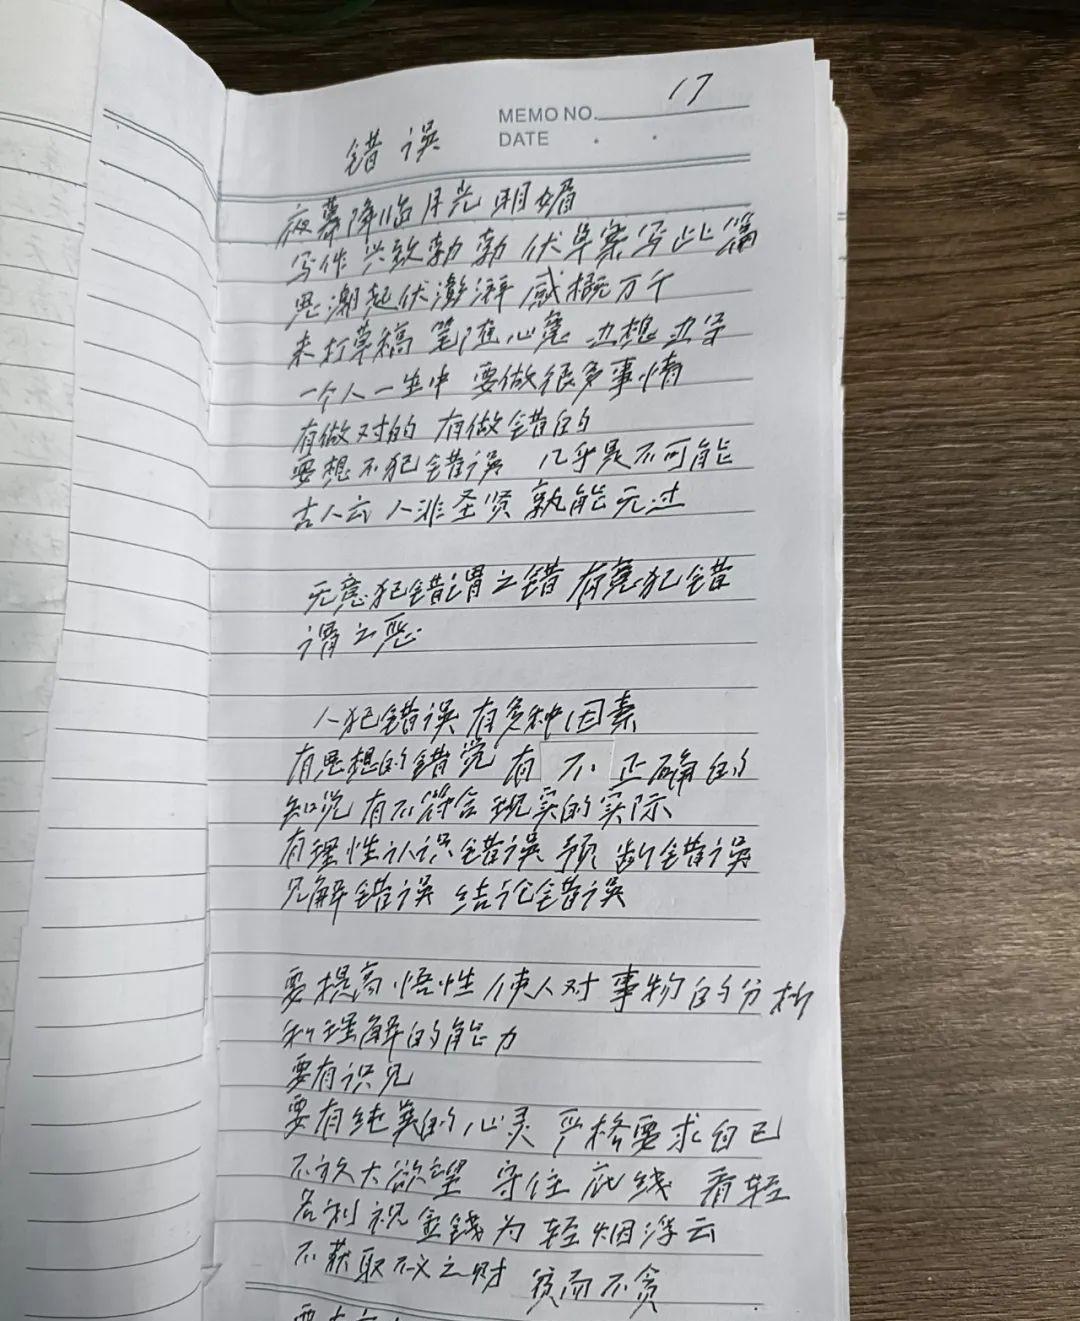 17
MEMO NO.
DATE
错误
夜幕降临月光明媚
写作兴致勃勃 伏卓案写此篇
思潮起伏澎湃 感概万千
未打草稿 笔随心意 边想边写
一个人一生中 要做很多事情
有做对的 有做错的
要想不犯错误 几乎是不可能
古人云 人非圣贤 孰能无过
无意犯错谓之错 有意犯错
谓之恶
人犯错误 有多种因素
有思想的错觉 有不正确的
知觉 有不符合现实的实际
有理性认识错误 预断错误
见解错误 结论错误
要提高悟性 使人对事物的分析
和理解的能力
要有识见
要有纯美的心灵 严格要求自己
不放大欲望 守住底线 看轻
名利 视金钱为轻烟浮云
不获取不义之财 贫而不贪